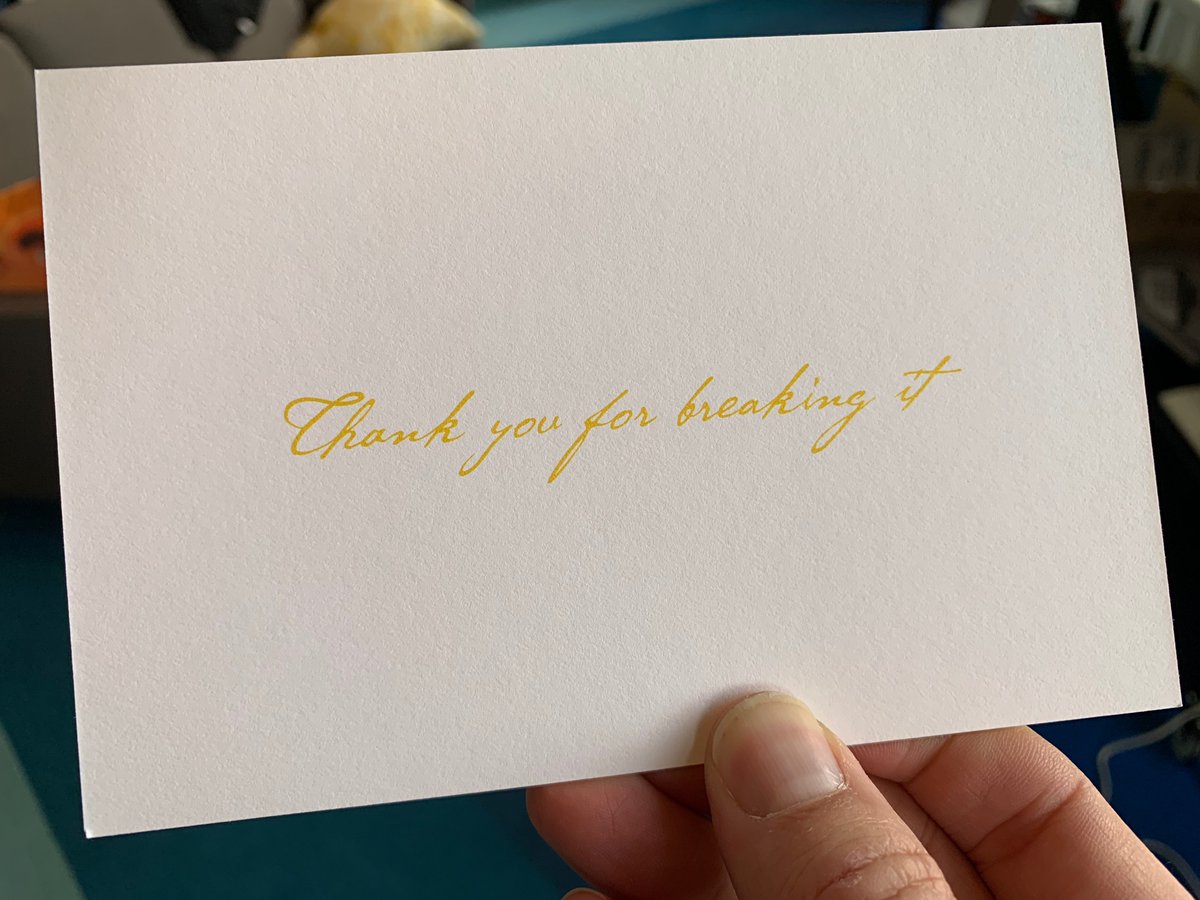 Thank you for breaking it